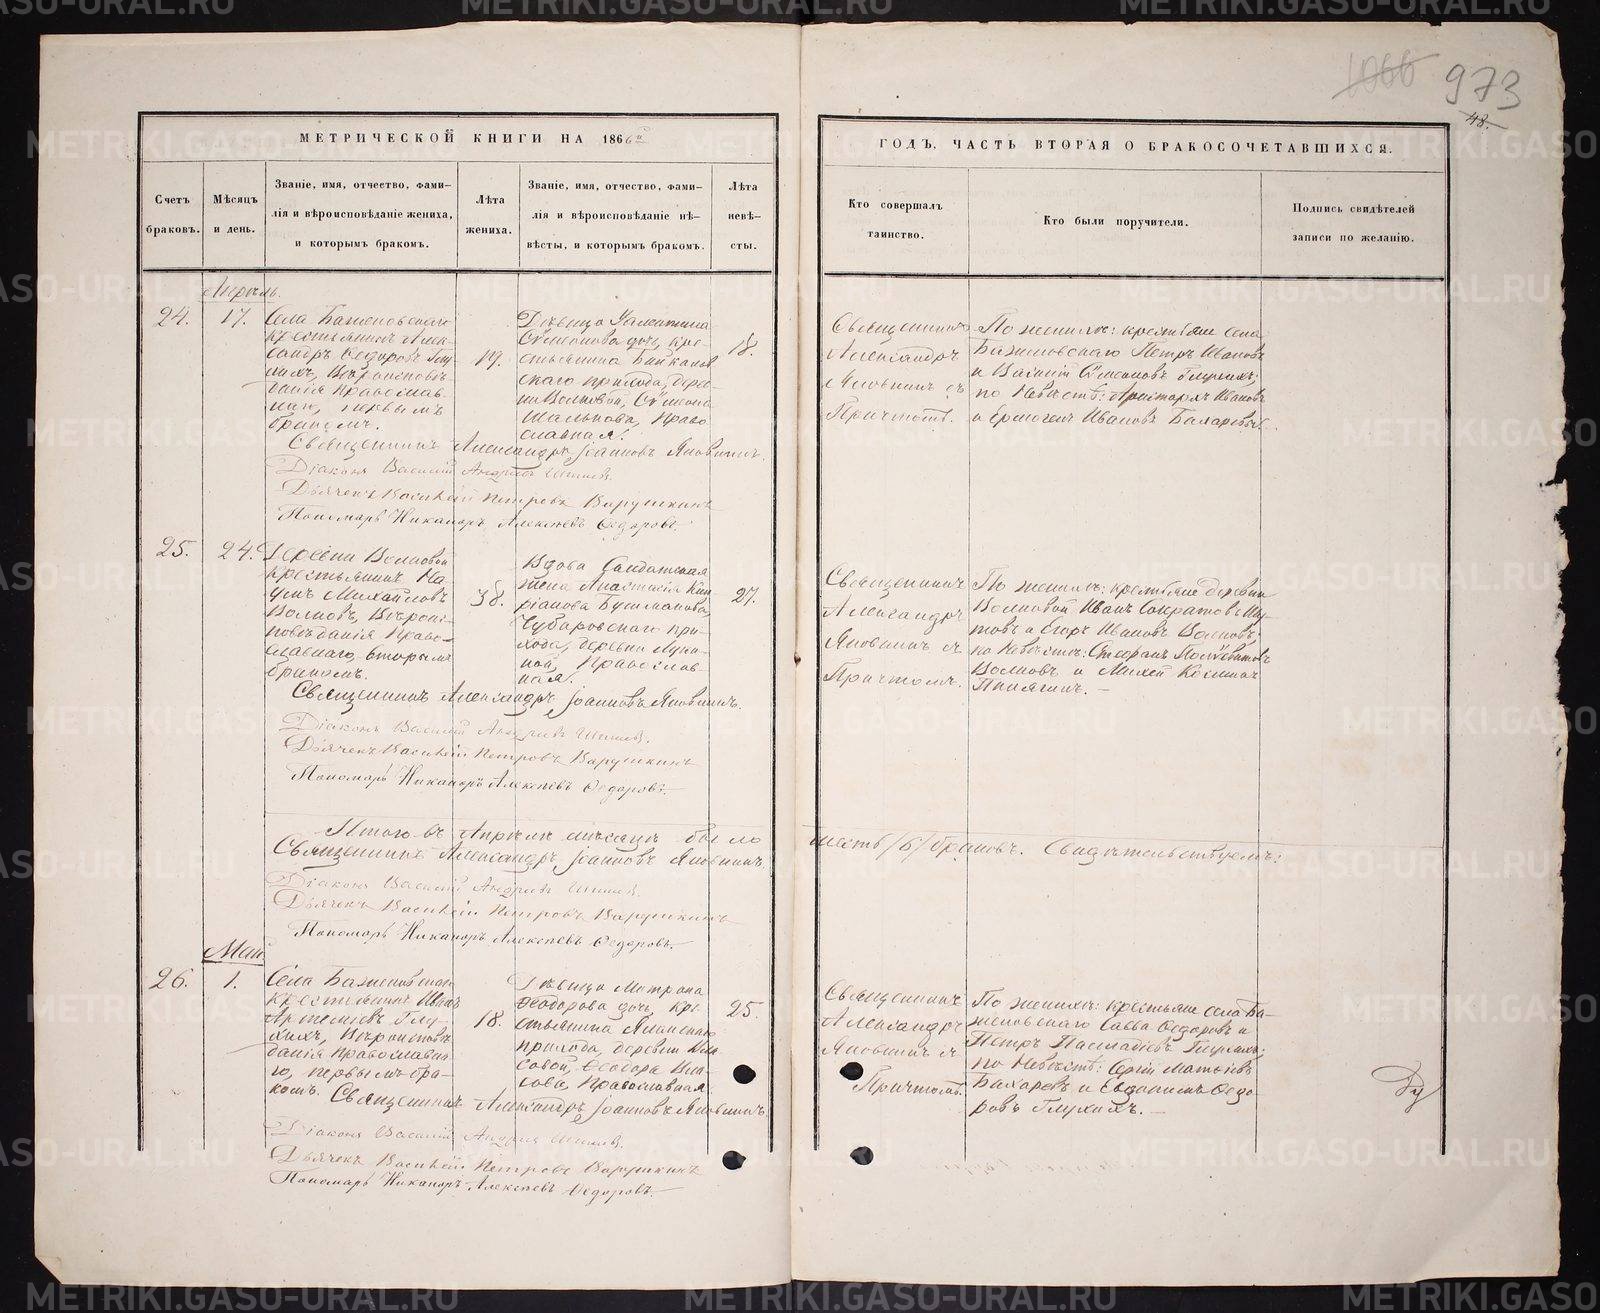 1066 973
48.
МЕТРИЧЕСКОЙ КНИГИ НА 1866й
ГОДЪ, ЧАСТЬ ВТОРАЯ О БРАКОСОЧЕТАВШИХСЯ.
Счетъ
браковъ.
Мѣсяцъ
и день.
Званіе, имя, отчество, фами-
лія и вѣроисповѣданіе жениха,
и которымъ бракомъ.
Лѣта
жениха.
Званіе, имя, отчество, фами-
лія и вѣроисповѣданіе не-
вѣсты, и которымъ бракомъ.
Лѣта
невѣ-
сты.
Кто совершалъ
таинство.
Кто были поручители.
Подпись свидѣтелей
записи по желанію.
Апрѣль.
24.
17.
Села Баженовскаго
крестьянинъ Алек-
сандръ Ѳедоровъ Глу-
хихъ, Вѣроисповѣ-
данія Православ-
наго, первымъ
бракомъ.
19.
Дѣвица
Сѵмеонова дочь, кре-
стьянина
скаго прихода, дерев-
ни Волковой, Сѵмеона
Шалькова, Право-
славная.
18.
Священникъ
Александръ
Яновичъ съ
Причтомъ.
По женихѣ: крестьяне села
Баженовскаго Петръ Ивановъ
и Василій Сѵмеоновъ Глухихъ;
по Невѣстѣ: Аристархъ Ивановъ
и Ермогенъ Ивановъ Бахаревы.
Священникъ Александръ Іоанновъ Яновичъ.
Діаконъ Василій Андреевъ
Дьячекъ Василій Петровъ Варушкинъ
Пономарь Никаноръ Алексѣевъ Ѳедоровъ.
25.
24.
Деревни Волковой
крестьянинъ На-
умъ Михайловъ
Волковъ, Вѣроис-
повѣданія Право-
славнаго, вторымъ
бракомъ.
38.
Вдова Солдатская
жена Анастасія Кип-
ріанова Бушманова,
Чубаровскаго при-
хода, деревни
ной, Православ-
ная.
27.
Священникъ
Александръ
Яновичъ съ
Причтомъ.
По женихѣ: крестьяне деревни
Волковой Иванъ Сократовъ
товъ и Егоръ Ивановъ Волковъ;
по Невѣстѣ: Стефанъ
Волковъ и Михей Косминъ
Пинягинъ. —
Священникъ Александръ Іоанновъ Яновичъ.
Діаконъ Василій Андреевъ
Дьячекъ Василій Петровъ Варушкинъ
Пономарь Никаноръ Алексѣевъ Ѳедоровъ.
Итого въ Апрѣлѣ мѣсяцѣ было шесть /6/ браковъ. Свидѣтельствуемъ:
Священникъ Александръ Іоанновъ Яновичъ.
Діаконъ Василій Андреевъ
Дьячекъ Василій Петровъ Варушкинъ
Пономарь Никаноръ Алексѣевъ Ѳедоровъ.
Май
26.
1.
Села Баженовскаго
крестьянинъ Иванъ
Артеміевъ Глу-
хихъ, Вѣроисповѣ-
данія Православна-
го, первымъ бра-
комъ.
18.
Дѣвица Матрона
Ѳеодорова дочь, кре-
стьянина
прихода, деревни
совой, Ѳеодора
сова, Православная
25.
Священникъ
Александръ
Яновичъ съ
Причтомъ.
По женихѣ: крестьяне села Ба-
женовскаго Савва Ѳедоровъ и
Петръ Палладіевъ Глухихъ;
по Невѣстѣ: Сергій Матѳіевъ
Бахаревъ и Евдокимъ Ѳедо-
ровъ Глухихъ. —
Священникъ Александръ Іоанновъ Яновичъ.
Діаконъ Василій Андреевъ
Дьячекъ Василій Петровъ Варушкинъ
Пономарь Никаноръ Алексѣевъ Ѳедоровъ.
METRIKI.GASO-URAL.RU